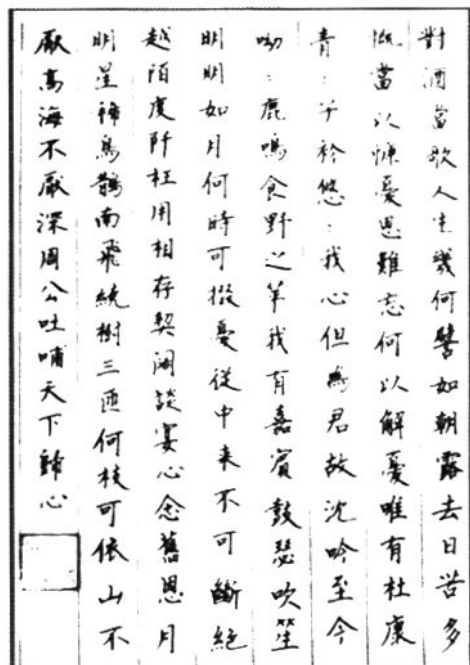 對酒當歌人生幾何譬如朝露去日苦多
慨當以慷憂思難忘何以解憂唯有杜康
青:子衿悠:我心但為君故沈吟至今
呦:鹿鳴食野之苹我有嘉賓鼓瑟吹笙
明明如月何時可掇憂從中来不可斷絕
越陌度阡枉用相存契闊談宴心念舊恩月
明星稀烏鵲南飛繞樹三匝何枝可依山不
厭高海不厭深周公吐哺天下歸心